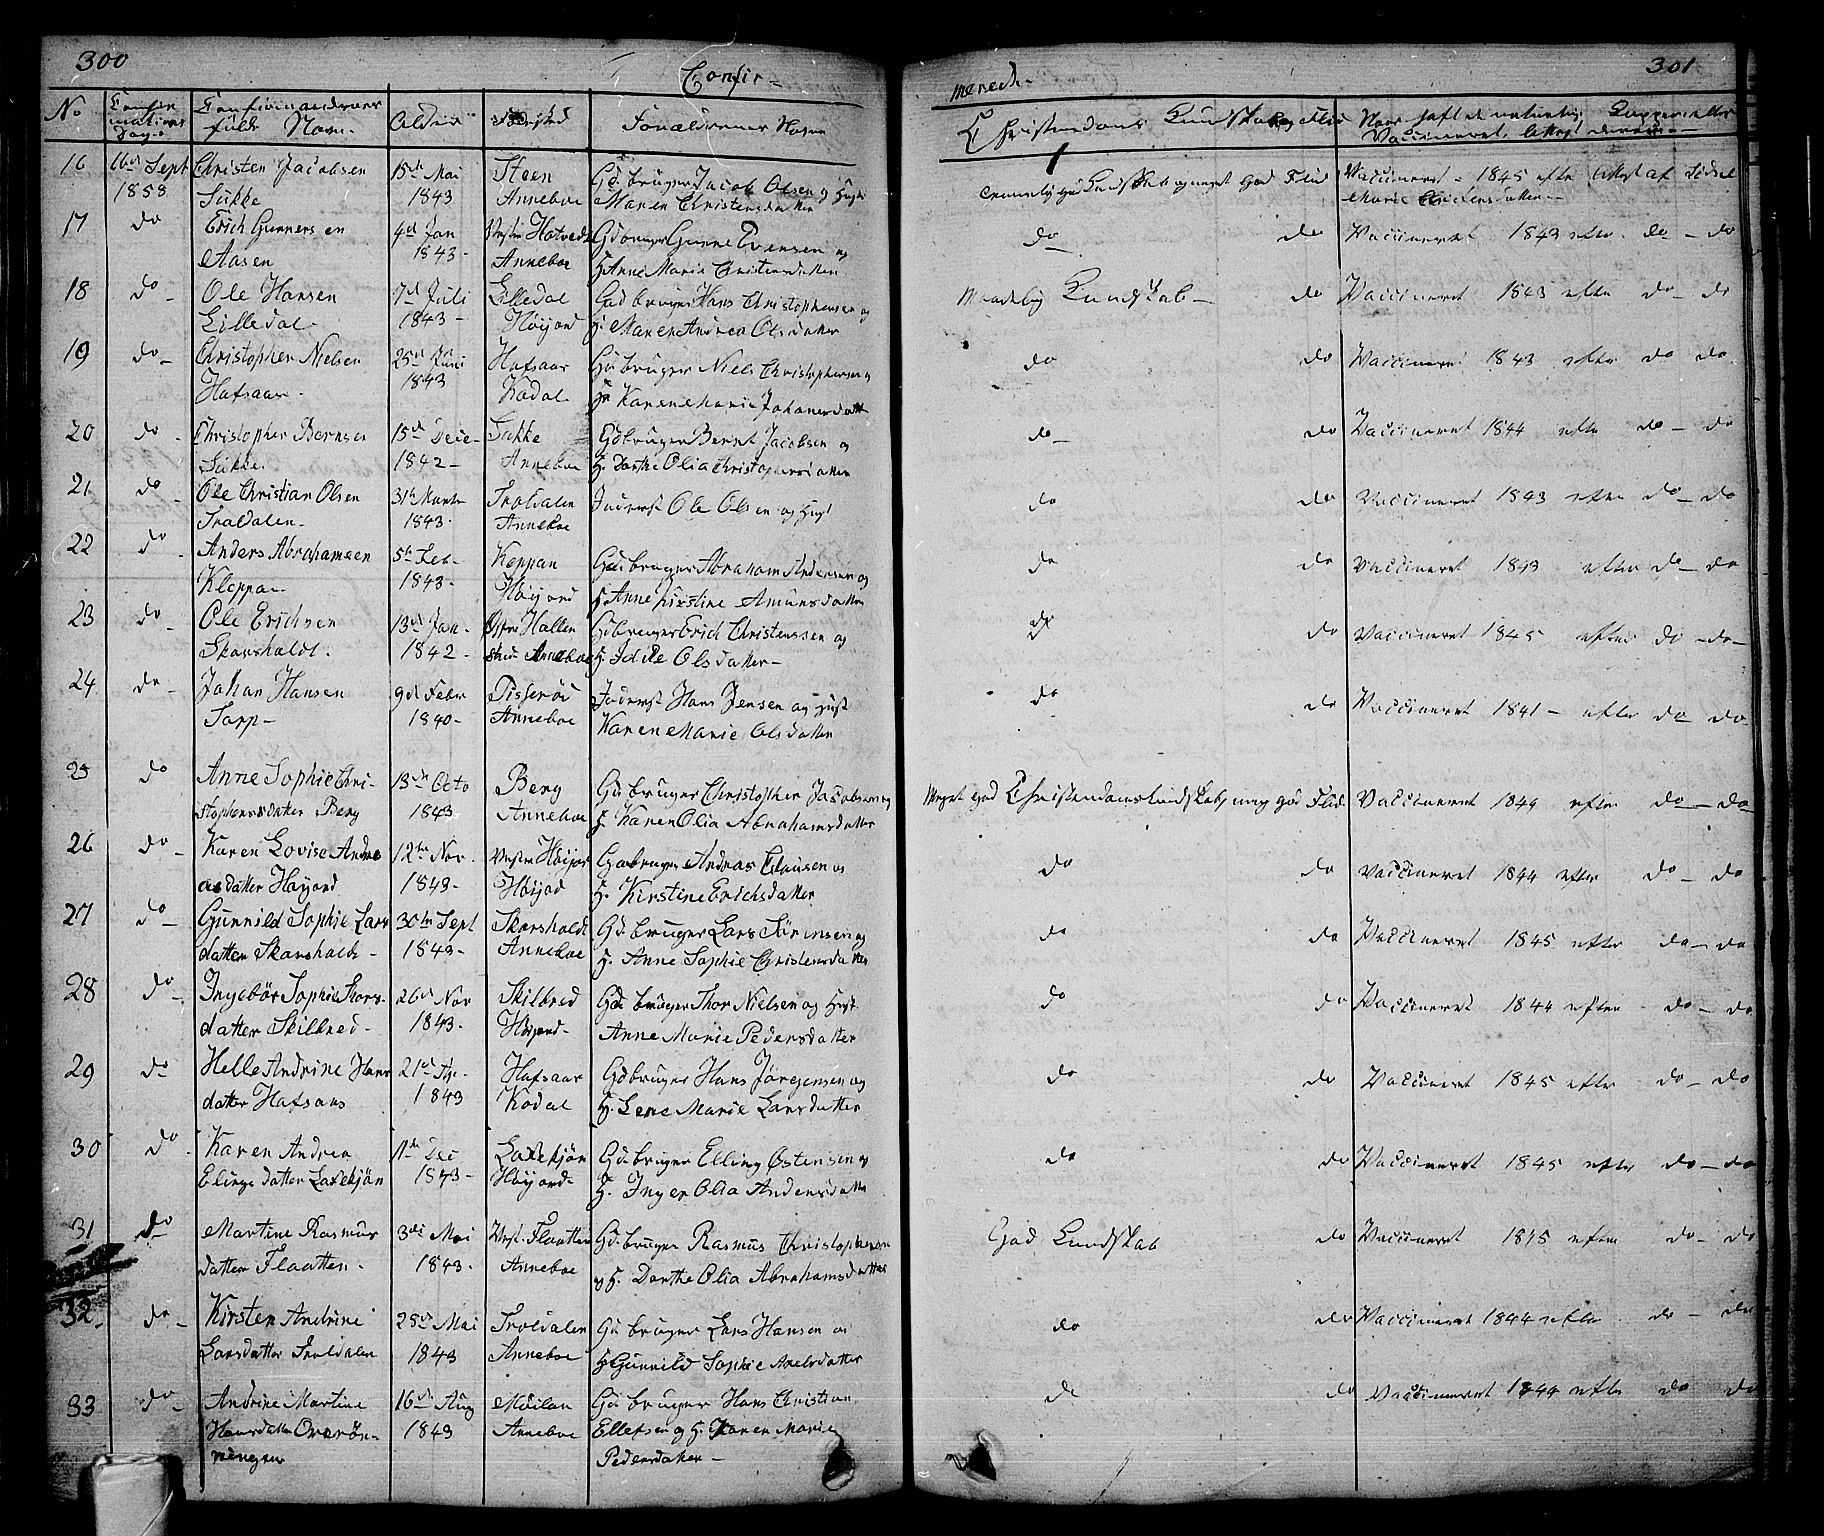 300
Confir-
No Confirmations Dag Confirmandernes fulde Navn. Alder Fødested Forældrenes Navn
16 16d Sept 1858 Christen Jacobsen Sukke 15d Mai 1843 Steen Anneboe Gdbruger Jacob Olsen og Hust Maren Christensdatter
17 do Erich Gunnersen Aasen 4d Jan 1843- Vestre Hotvedt Anneboe Gdbruger Gunne Evensen og H. Anne Marie Christensdatter
18 do- Ole Hansen Lilledal- 7d Juli 1843- Lilledal Høijord Gdbruger Hans Christophersen og H. Maren Andrea Olsdatter
19 do- Christopher Nielsen Hafsaar- 25d Juni 1843 Hafsaar Kodal Gdbruger Niels Christophersen og H. Karen Marie Johannesdatt
20 do- Christopher Bernsen Sukke. 15d Dece- 1842- Sukke Anneboe Gdbruger Bernt Jacobsen og H. Dorthe Olia Christophersdatter
21 do- Ole Christian Olsen Troldalen- 31te Marts 1843- Troldalen Anneboe Inderst Ole Olsen og Hust
22 do- Anders Abrahamsen Kleppan- 5te Feb- 1843- Keppan Høijord Gdbruger Abraham Andersen og H. Anne Kirstine Amunsdatter
23 do- Ole Erichsen Skarsholdt- 13d Jan- 1842- Østre Hallen Anneboe Gdbruger Erich Christenssen og H. Idde Olsdatter-
24 do- Johan Hansen Torp- 9d Febr 1840- Tisserød Anneboe Inderst Hans Jensen og Hust Karen Marie Olsdatter
25 do Anne Sophie Christophersdatter Berg 13de Octo 1843 Berg Anneboe Gdbruger Christopher Jacobsen og H. Karen Olia Abrahamsdatter
26 do- Karen Lovise Andreasdatter Høijord 12te Nov. 1843- Vestre Høijor Høijod Gdbruger Andreas Clausen og H. Kirstine Erichsdatter
27 do- Gunnild Sophie Larsdatter Skarsholdt- 30te Sept 1843- Skarsholdt Anneboe Gdbruger Lars Sørensen og H. Anne Sophie Christensdatter
28 do- Ingebør Sophie Thorsdatter Skilbred- 26d Nov 1843- Skilbred Høijord- Gdbruger Thor Nielsen og Hust Anne Marie Pedersdatter
29 do Helle Andrine Hansdatter Hafsaas 21de 1843 Hafsaar Kodal Gdbruger Hans Jørgensen og H. Lene Marie Larsdatter
30 do- Karen Andrea Elingsdatter Laxekjøn 11te Dec 1843- Laxekjøn Høijord- Gdbruger Elling Østensen og H. Inger Olia Andersdatter
31 do Martine Rasmusdatter Flaatten- 3die Mai 1843- Vest. Flaatten Anneboe Gdbruger Rasmus Christophersen og H. Dorthe Olia Abrahamsdatter
32- do- Kirsten Andrine Larsdatter Troldalen 28de Mai 1843 Troldalen Anneboe Gdbruger Lars Hansen og H. Gunnild Sophie Axelsdatter
33 do- Andrine Martine Hansdatter Overønningen 16d Aug 1843 Møilan Anneboe Gdbruger Hans Christian Ellefsen og H. Karen Marie Pedersdatter-
301
merede-
Christendoms Kundskab og Flid Naar haft de naturlig Kopper eller Vaccineret, Attest derom-
Temmelig god Kundskab og meget god Flid Vaccineret- 1845 efter Attest af Sidsel Marie Andersdatter-
do do Vaccineret 1843 efter do- do
Maadelig Kundskab- do Vaccineret 1843 efter do- do
do do Vaccineret 1843 efter do do.
do- do Vaccineret 1844 efter do- do
do do Vaccineret 1843 efter do- do
do do Vaccineret 1843 efter do- do
do do Vaccineret 1845 efter do- do-
do do Vaccineret 1841- efter do do-
Meget god Christendomskundskab og meg god Flid Vaccineret 1844 efter do- do
do do Vaccineret 1844 efter do- do
do do Vaccineret 1845 efter do- do
do do Vaccineret 1844 efter- do- do
do do Vaccineret 1845 efter do- do
do do Vaccineret 1845 efter do- do
God Kundskab do Vaccineret 1845 efter do- do
do do Vaccineret 1844 efter do- do
do do Vaccineret 1844 efter do do